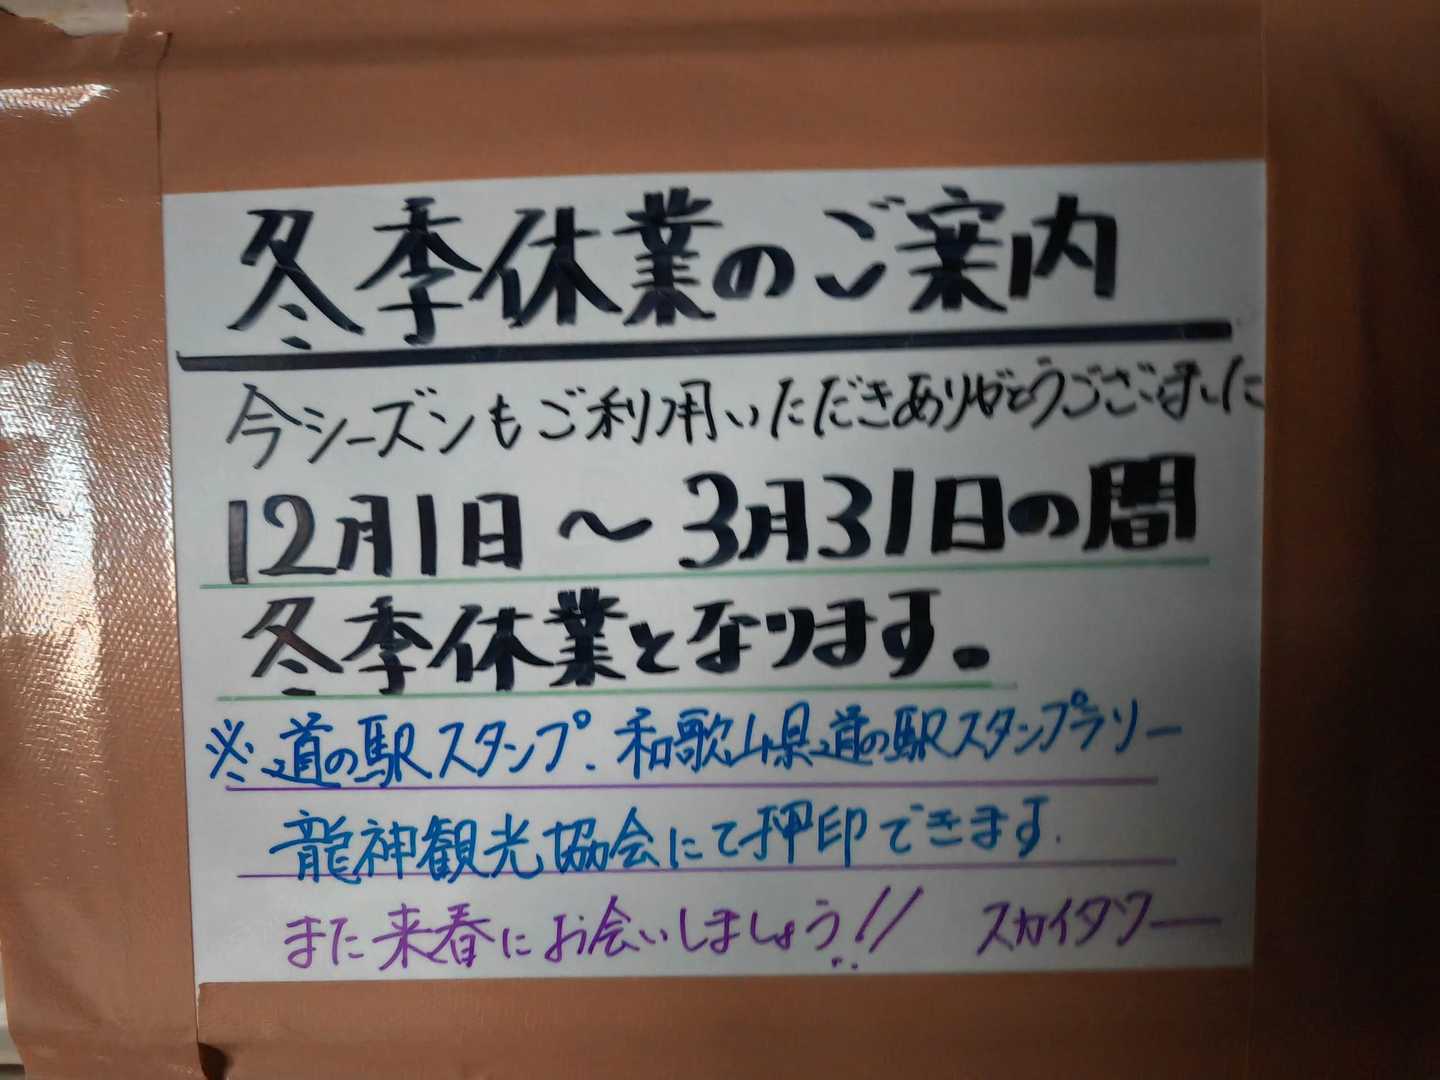 冬季休業のご案内
今シーズンもご利用いただきありがとうございました
12月1日～3月31日の間
冬季休業となります。
※道の駅スタンプ、和歌山県道の駅スタンプラリー
龍神観光協会にて押印できます.
また来春にお会いしましょう!! スカイタワー